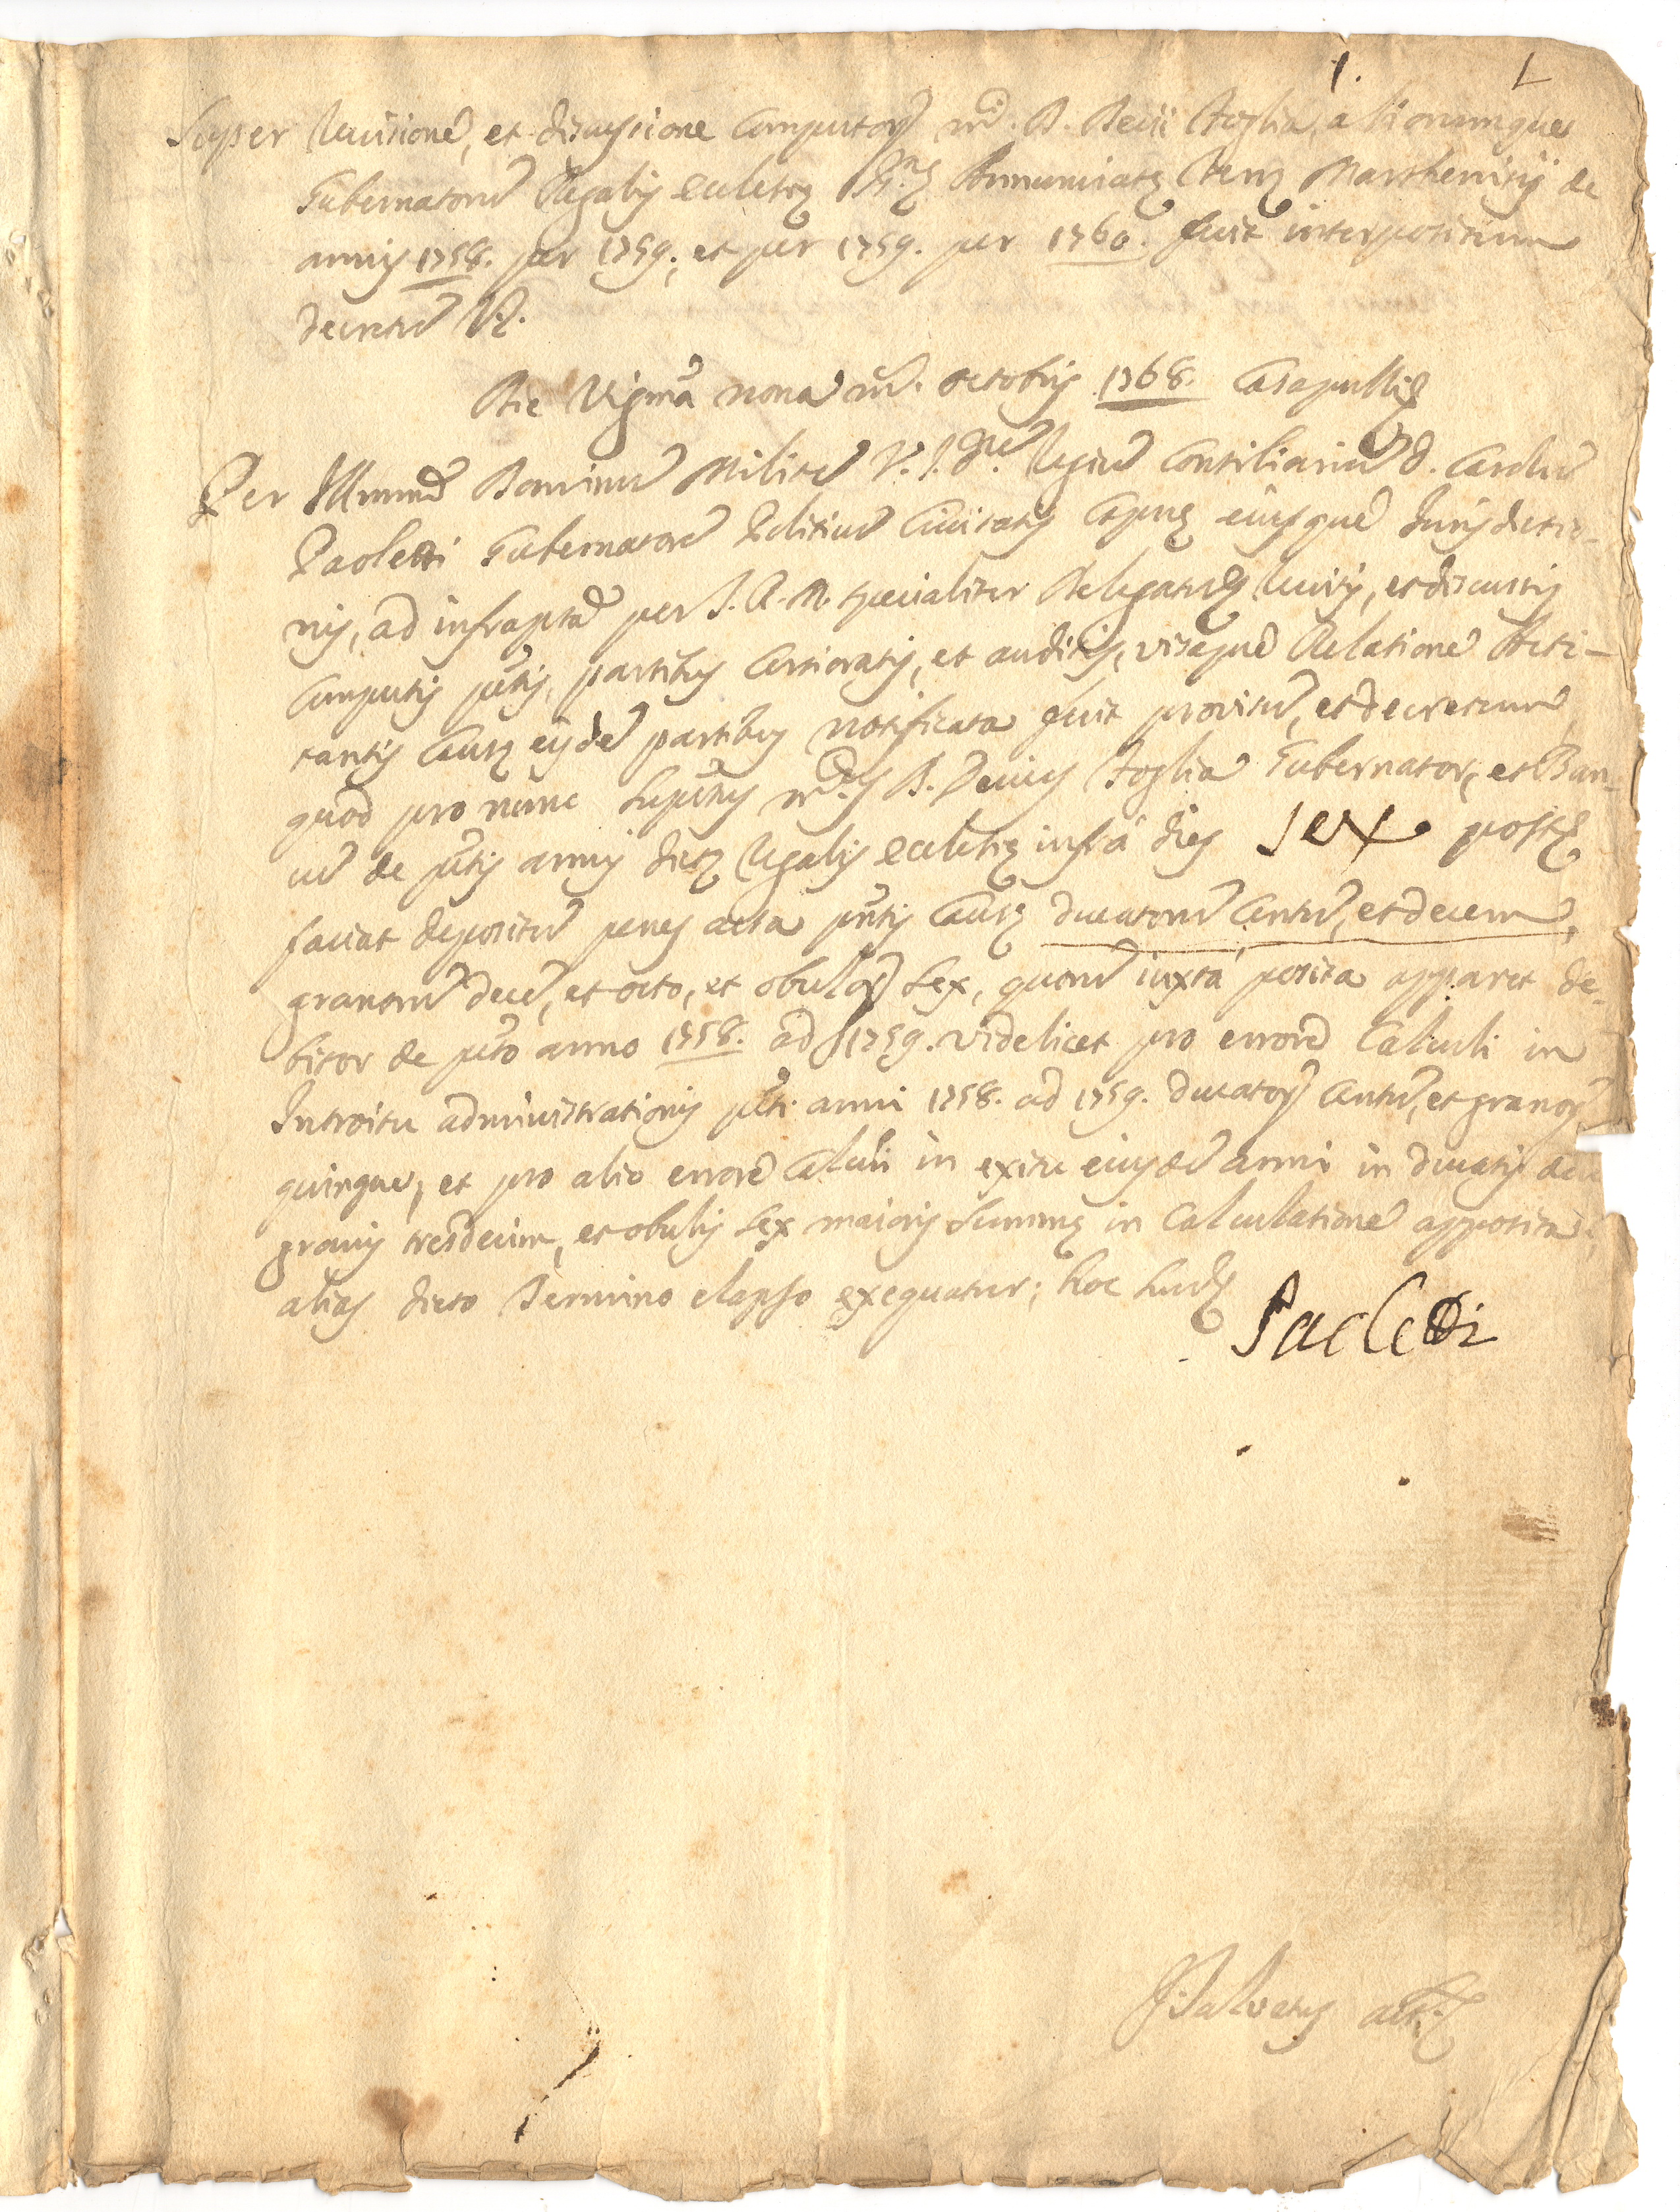 1. L
Super revisione, et discussione computor m. D. Decii Foglia, aliorumque
Gubernatorũ Regalis ecclesię Annunciatę terrę Marthenisij de
annis 1758. per 1759., et per 1759. per 1760. fuit interpositum
decretũ V.
Die Vigma nona m. octobris 1768. Casapullę
Per Illmum Dominũ Militẽ V.J.D. Regiũ Consiliariũ D. Carolũ
Paoletti Gubernatorẽ Politicũ Civitatis Capuę eiusque Jurisdictio-
nis, ad infraptã per S.R.M. specialiter Delegatũ, revisis, et discussis
computis ptis, partibus certioratis, et auditis, visaque Relatione Acti-
tantis Causę eisdẽ partibus notificata fuit provisũ, et decretum,
quod pro nunc suptus m. D. Decius Foglia Gubernator, et Ban-
cũ de ptis annis dictę Regalis ecclesię infrà dies sex post
faciat depositũ penes acta pntis Causę ducatorũ centũ, et decem,
granorũ decẽ, et octo, et obulor sex, quorũ iuxtà posita apparet de-
bitor de pto anno 1758. ad 1759. videlicet pro errore Calculi in
Introitu administrationis pti anni 1758. ad 1759. ducator centũ, et granor
quinque, et pro alio errore Calculi in exitu eiusdẽ anni in ducatis
granis tresdecim, et obulis sex maioris summę in Calculatione apposita,
alias dicto Termino elapso exequatur; hoc suũ
Paoletti
Salvatus act.